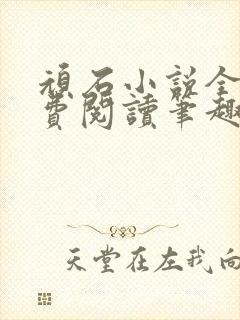 頑石小説全
費閱讀筆趣
天堂在左我向